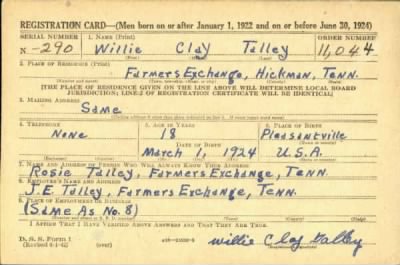 REGISTRATION CARD—(Men born on or after January 1, 1922 and on or before June 30, 1924)
SERIAL NUMBER 1. NAME (Print) ORDER NUMBER
N-290 Willie Clay Talley 11,044
2. PLACE OF RESIDENCE (Print)
Farmers Exchange, Hickman, Tenn.
[THE PLACE OF RESIDENCE GIVEN ON THE LINE ABOVE WILL DETERMINE LOCAL BOARD
JURISDICTION; LINE 2 OF REGISTRATION CERTIFICATE WILL BE IDENTICAL]
3. MAILING ADDRESS
Same
4. TELEPHONE 5. AGE IN YEARS 6. PLACE OF BIRTH
None 18 Pleasantville
DATE OF BIRTH
March 1, 1924 U.S.A.
7. NAME AND ADDRESS OF PERSON WHO WILL ALWAYS KNOW YOUR ADDRESS
Rosie Talley, Farmers Exchange, Tenn.
8. EMPLOYER'S NAME AND ADDRESS
J.E. Talley, Farmers Exchange, Tenn.
9. PLACE OF EMPLOYMENT OR BUSINESS
(Same As No. 8)
I AFFIRM THAT I HAVE VERIFIED ABOVE ANSWERS AND THAT THEY ARE TRUE.
D. S. S. Form 1
Willie Clay Talley